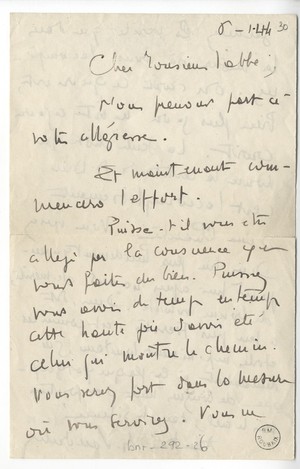 8-1-44 30
Cher Monsieur l'abbé,
Nous prenons part à
votre allégresse.
Et maintenant com-
mencera l'effort.
Puisse-t-il vous être
allégé par la conscience que
vous faites du bien. Puissiez
vous avoir de temps en temps
cette haute joie d'avoir été
celui qui montre le chemin.
Vous serez fort dans la mesure
où vous servirez. Vous ne